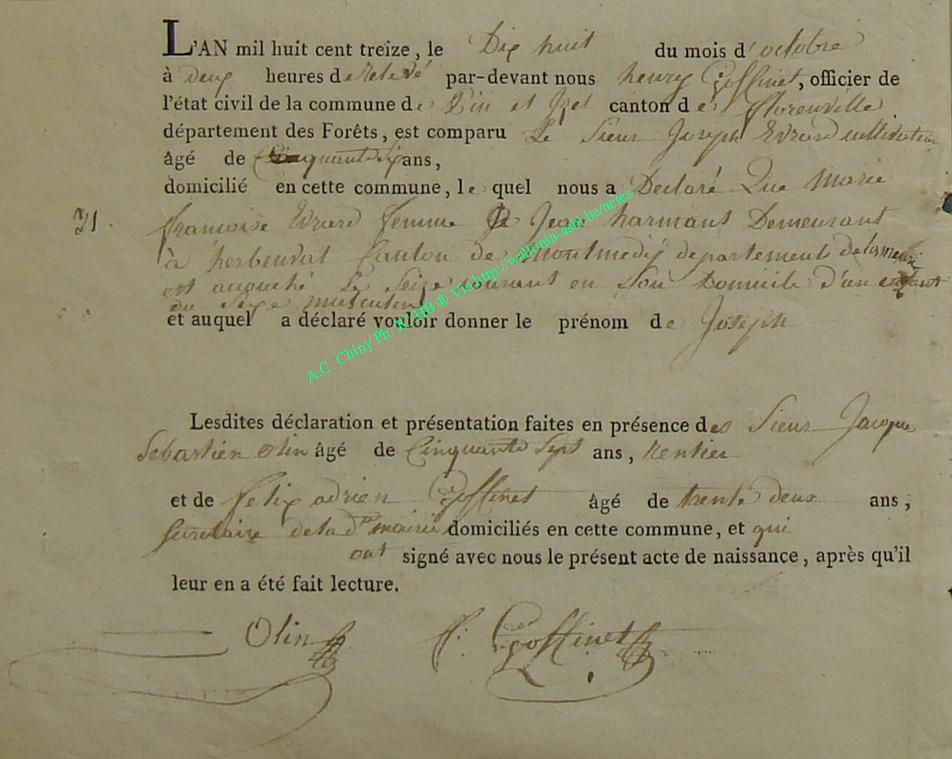 L'AN mil huit cent treize, le Dix huit du mois d'octobre
à deux heures de relevé par-devant nous henry Goffinet, officier de
l'état civil de la commune de Pin et Izel canton de florenville
département des Forêts, est comparu Le Sieur Joseph Evrard cultivateur
âgé de Cinquante six ans,
domicilié en cette commune, le quel nous a Declaré Que Marie
31. françoise Evrard femme de Jean harmant Demeurant
à herbeuval Canton de montmedy departement de la meuse
est accouché Le Seize courant en Son Domicile d'un enfant
du sexe masculin
et auquel a déclaré vouloir donner le prénom de Joseph
A.C. Chiny Ph. ® Via http://wallonia-asbl.be/actes
Lesdites déclaration et présentation faites en présence des Sieur Jacque
Sebastien Olin âgé de Cinquante Sept ans, Rentier
et de felix adrien Goffinet âgé de trente deux ans,
Secretaire de la de mairie domiciliés en cette commune, et qui
ont signé avec nous le présent acte de naissance, après qu'il
leur en a été fait lecture.
Olin f. Goffinet